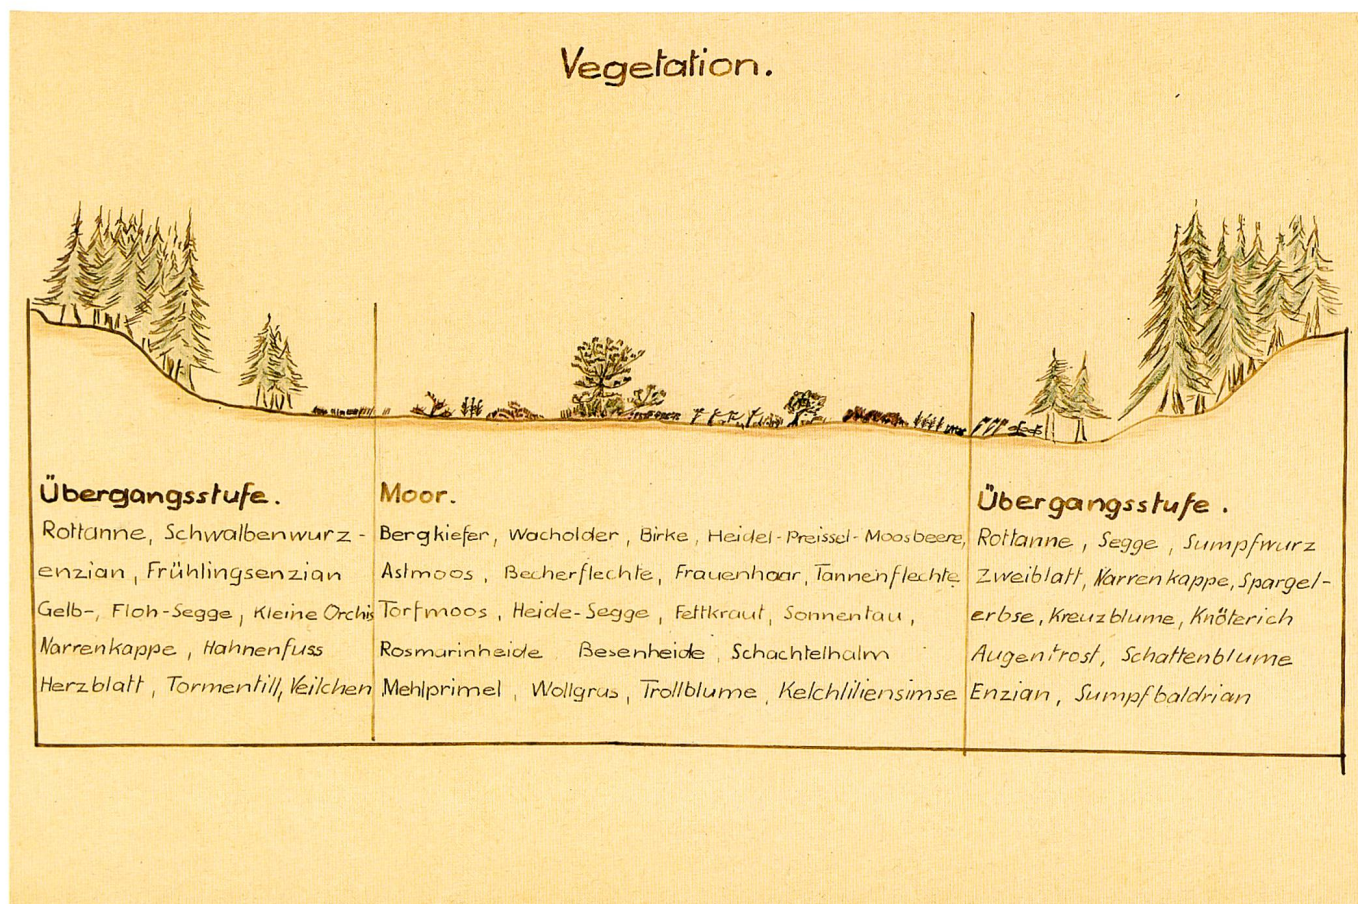 Vegetation.
Übergangsstufe.
Rottanne, Schwalbenwurz-
enzian, Frühlingsenzian
Gelb-, Floh-Segge, Kleine Orchis
Narrenkappe, Hahnenfuss
Herzblatt, Tormentill, Veilchen
Moor.
Bergkiefer, Wacholder, Birke, Heidel-Preissel-Moosbeere,
Astmoos, Becherflechte, Frauenhaar, Tannenflechte
Torfmoos, Heide-Segge, Fettkraut, Sonnentau,
Rosmarinheide Besenheide, Schachtelhalm
Mehlprimel, Wollgras, Trollblume, Kelchliliensimse
Übergangsstufe.
Rottanne, Segge, Sumpfwurz
Zweiblatt, Narrenkappe, Spargel-
erbse, Kreuzblume, Knöterich
Augentrost, Schattenblume
Enzian, Sumpfbaldrian